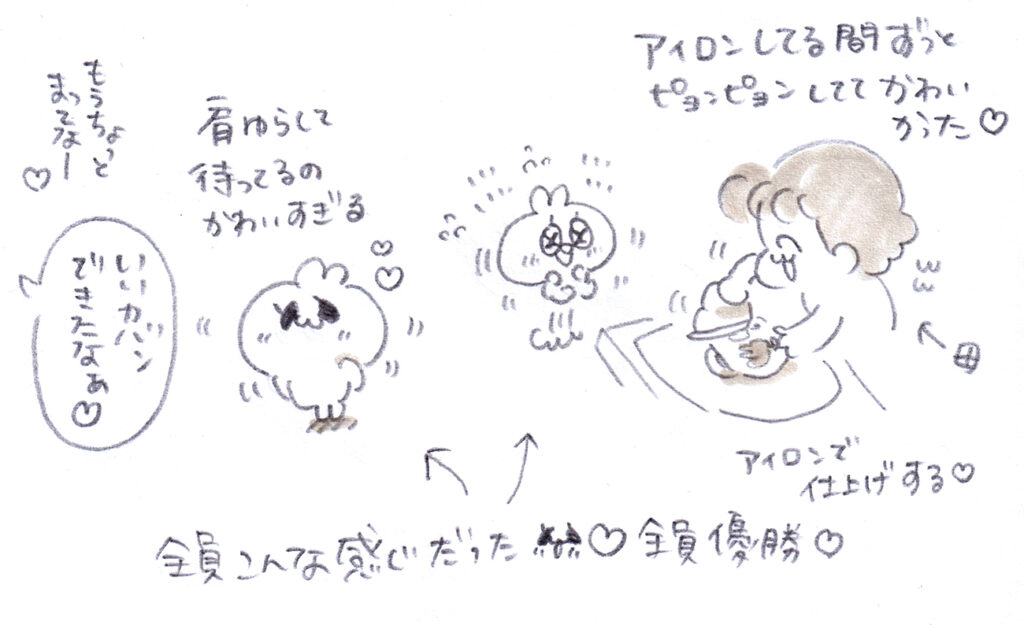 アイロンしてる間ずっと
ピョンピョンしててかわい
かった♡
肩ゆらして
待ってるの
かわいすぎる
もうちょっと
まっててなー
♡
いいカバン
できたなぁ♡
アイロンで
仕上げする♡
全員こんな感じだった♡全員優勝♡